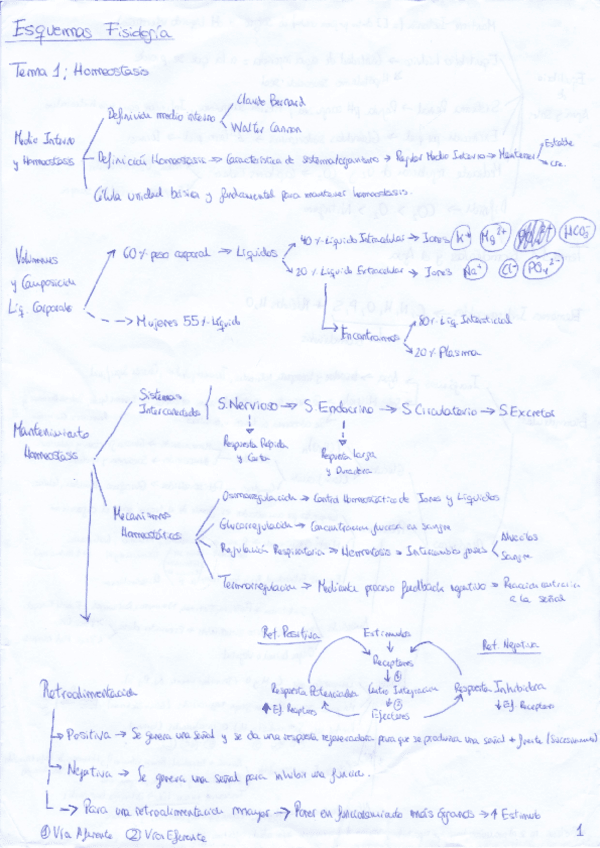 Esquemas Fisiología
Tema 1: Homeostasis
Medio Interno y Homeostasis
Definición medio interno
Claude Bernard
Walter Cannon
Definición Homeostasis → Característica de sistema/organismo → Regular Medio Interno → Mantener
Estable
Cte.
Célula unidad básica y fundamental para mantener homeostasis.
Volúmenes y Composición Líq. Corporales
60% peso corporal → Líquidos
40% Líquido Intracelular → Iones K+ Mg2+ HCO3-
20% Líquido Extracelular → Iones Na+ Cl- PO4 2-
Encontramos
80% Líq. Intersticial
20% Plasma
Mujeres 55% Líquido
Mantenimiento Homeostasis
Sistemas Intercomunicados
S. Nervioso → S. Endocrino → S Circulatorio → S Excretor
Respuesta Rápida y Corta
Respuesta Larga y Duradera
Mecanismos Homeostáticos
Osmorregulación → Control Homeostático de Iones y Líquidos
Glucorregulación → Concentración glucosa en sangre
Regulación Respiratoria → Homeostasis → Intercambio gases
Alveolos
Sangre
Termorregulación → Mediante proceso feedback negativo → Reacción contraria a la señal
Ret. Positiva
Estímulos
Ret. Negativa
Receptores
①
Respuesta Potenciadora
Centro Integración
Respuesta Inhibidora
↑ Ef. Receptores
②
↓ Ef. Receptores
Efectores
Retroalimentación
Positiva → Se genera una señal y se da una respuesta regeneradora para que se produzca una señal + fuerte (Sucesivamente)
Negativa → Se genera una señal para inhibir una función.
Para una retroalimentación mayor → Poner en funcionamiento más órganos → ↑ Estímulo
① Vía Aferente ② Vía Eferente
1